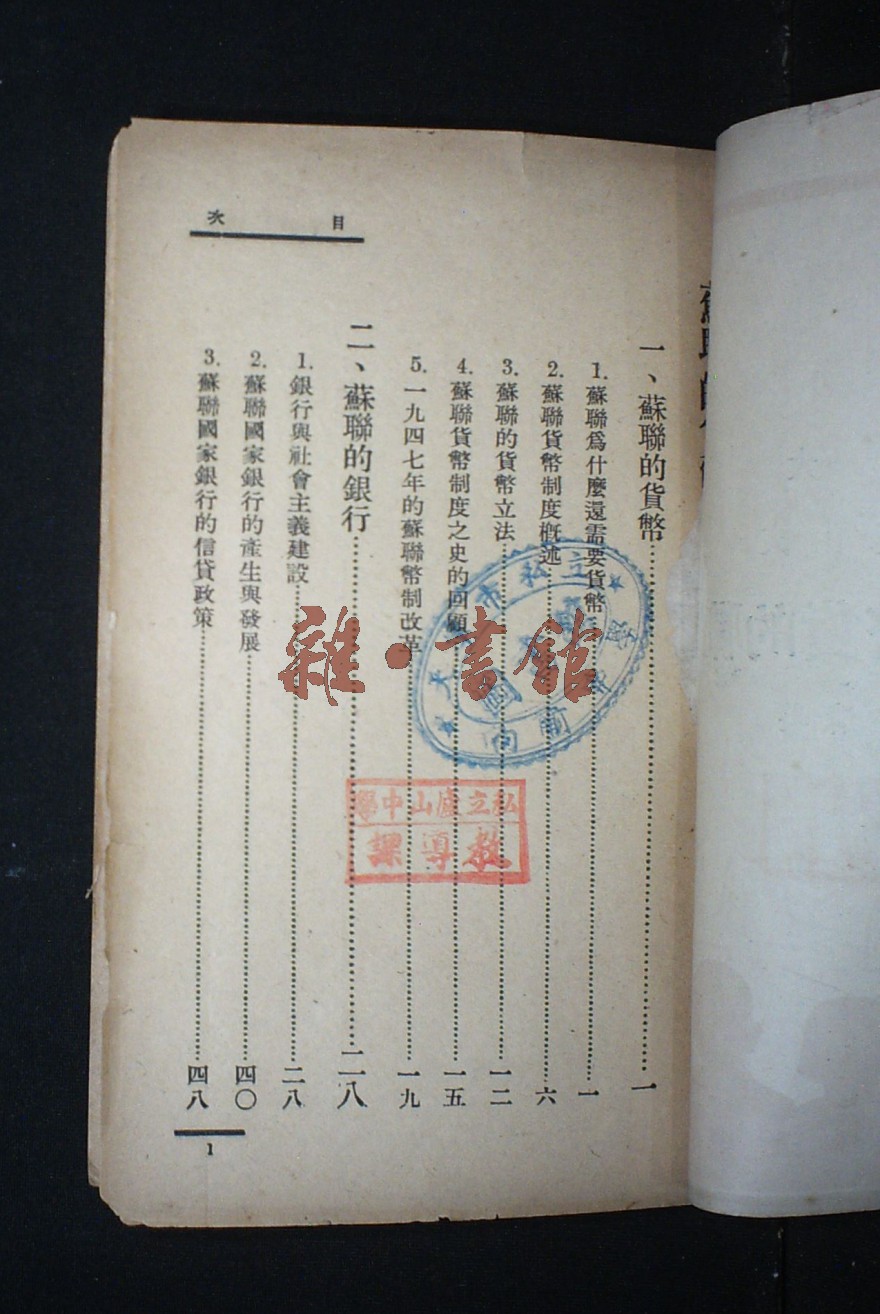 目次
一、蘇聯的貨幣……一
1. 蘇聯爲什麼還需要貨幣……一
2. 蘇聯貨幣制度概述……六
3. 蘇聯的貨幣立法……一二
4. 蘇聯貨幣制度之史的回顧……一五
5. 一九四七年的蘇聯幣制改革……一九
二、蘇聯的銀行……二八
1. 銀行與社會主義建設……二八
2. 蘇聯國家銀行的產生與發展……四〇
3. 蘇聯國家銀行的信貸政策……四八
1
私立廬山中學
教導課
雜·書館